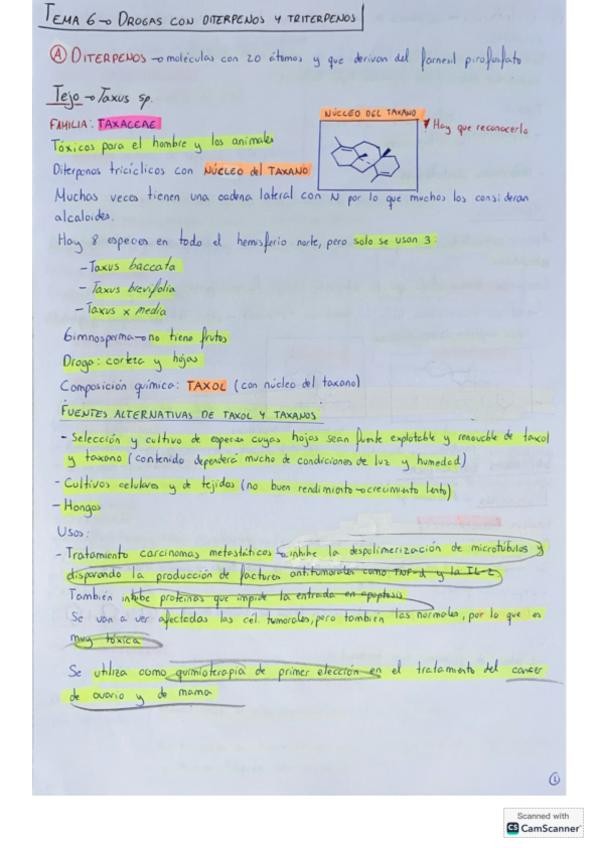 TEMA 6→ DROGAS CON DITERPENOS Y TRITERPENOS
Ⓐ DITERPENOS → moléculas con 20 átomos y que derivan del farnesil pirofosfato
Tejo → Taxus sp.
FAMILIA: TAXACEAE
Tóxicos para el hombre y los animales
NÚCLEO DEL TAXANO
Hay que reconocerlo
Diterpenos tricíclicos con NÚCLEO del TAXANO
Muchas veces tienen una cadena lateral con N por lo que muchos los consideran
alcaloides.
Hay 8 especies en todo el hemisferio norte, pero solo se usan 3:
- Taxus baccata
- Taxus brevifolia
- Taxus x media
Gimnosperma → no tiene frutos
Droga: corteza y hojas
Composición química: TAXOL (con núcleo del taxano)
FUENTES ALTERNATIVAS DE TAXOL Y TAXANOS
- Selección y cultivo de especies cuyas hojas sean fuente explotable y renovable de taxol
y taxano (contenido dependerá mucho de condiciones de luz y humedad)
- Cultivos celulares y de tejidos (no buen rendimiento → crecimiento lento)
- Hongos
Usos:
- Tratamiento carcinomas metastáticos → inhibe la despolimerización de microtúbulos y
disparando la producción de factores antitumorales como TNF-α y la IL-2
También inhibe proteinas que impide la entrada en apoptosis
Se van a ver afectadas las cél. tumorales, pero también las normales, por lo que es
muy tóxica
Se utiliza como quimioterapia de primer elección en el tratamiento del cancer
de ovario y de mama
1
Scanned with
CS CamScanner